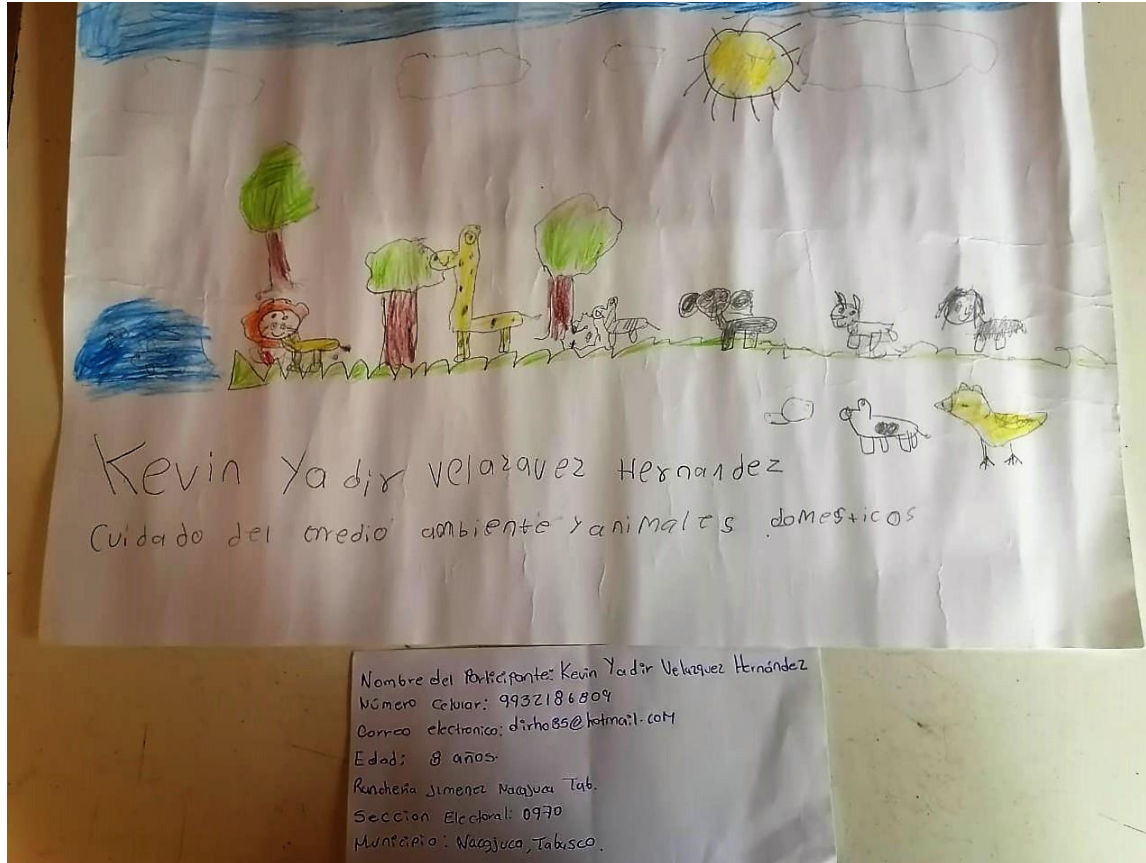 Kevin Yadir Velazquez Hernandez
Cuidado del medio ambiente y animales domesticos
Nombre del Participante: Kevin Yadir Velazquez Hernández
Número Celular: 9932186809
Correo electronico: dirho85@hotmail.com
Edad: 8 años.
Ranchería Jimenez Nacajuca Tab.
Seccion Electoral: 0970
Municipio: Nacajuca, Tabasco.